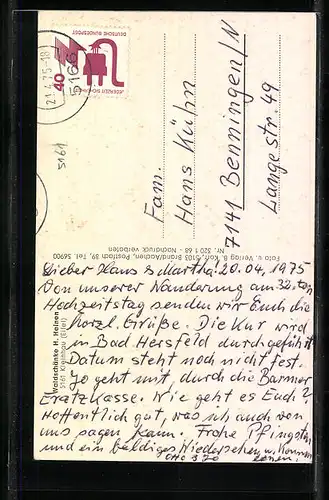 Lieber Hans & Martha! 20.04.1975
Von unserer Wanderung am 32.ten
Hochzeitstag senden wir Euch die
herzl. Grüße. Die Kur wird
in Bad Hersfeld durchgeführt
Datum steht noch nicht fest.
Jo geht mit, durch die Barmer
Ersatzkasse. Wie geht es Euch?
Hoffentlich gut, was ich auch von
uns sagen kann. Frohe Pfingsten
und ein baldiges Wiedersehen
Fam.
Hans Kühm
7141 Benningen/N
Langestr. 49
Waldschänke H. Heinen
5161
Foto u. Verlag B. Kort, 5105 Brand/Aachen, Postfach 59, Tel. 56900
Nr. 3201 68 - Nachdruck verboten
DEUTSCHE BUNDESPOST
40
JEDERZEIT SICHERHEIT
21.4.75-18
5166
5161